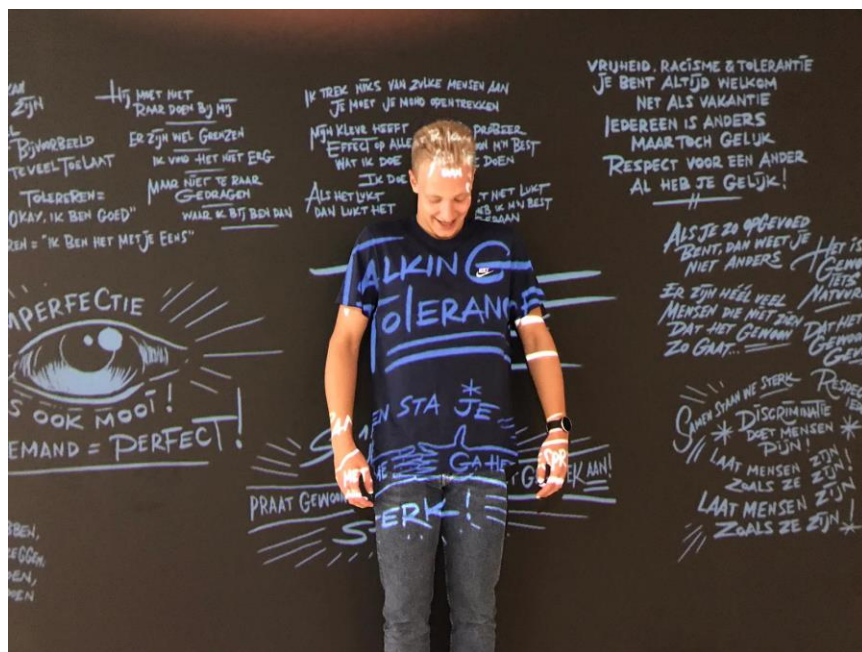 ZIJN
BIJVOORBEELD
TEVEEL TOELAAT
TOLEREREN=
OKAY, IK BEN GOED"
REN= "IK BEN HET MET JE EENS"
HIJ MOET NIET
RAAR DOEN BIJ MIJ
ER ZIJN WEL GRENZEN
IK VIND HET NIET ERG
MAAR NIET TE RAAR
GEDRAGEN
WAAR IK BIJ BEN DAN
IK TREK NIKS VAN ZULKE MENSEN AAN
JE MOET JE MOND OPENTREKKEN
MIJN KLEUR HEEFT
EFFECT OP ALLES
WAT IK DOE
IK DOE
ALS HET LUKT
DAN LUKT HET
PROBEER
OM M'N BEST
TE DOEN
HET LUKT
IK M'N BEST
GEDAAN
VRIJHEID, RACISME & TOLERANTIE
JE BENT ALTIJD WELKOM
NET ALS VAKANTIE
IEDEREEN IS ANDERS
MAAR TOCH GELIJK
RESPECT VOOR EEN ANDER
AL HEB JE GELIJK!
ALS JE ZO OPGEVOED
BENT, DAN WEET JE
NIET ANDERS
ER ZIJN HÉÉL VEEL
MENSEN DIE NIET ZIEN
DAT HET GEWOON
ZO GAAT...
HET I
GEWO
IETS
NATUUR
DAT HE
GEWOO
TALKING
TOLERANCE
MPERFECTIE
S OOK MOOI!
EMAND = PERFECT!
EN STA JE
PRAAT GEWOON
AAN!
STERK!
SAMEN STAAN WE STERK
DISCRIMINATIE
DOET MENSEN
PIJN!
LAAT MENSEN ZIJN
ZOALS ZE ZIJN!
LAAT MENSEN ZIJN
ZOALS ZE ZIJN!
RESPE
BBEN,
EGGEN,
DEN,